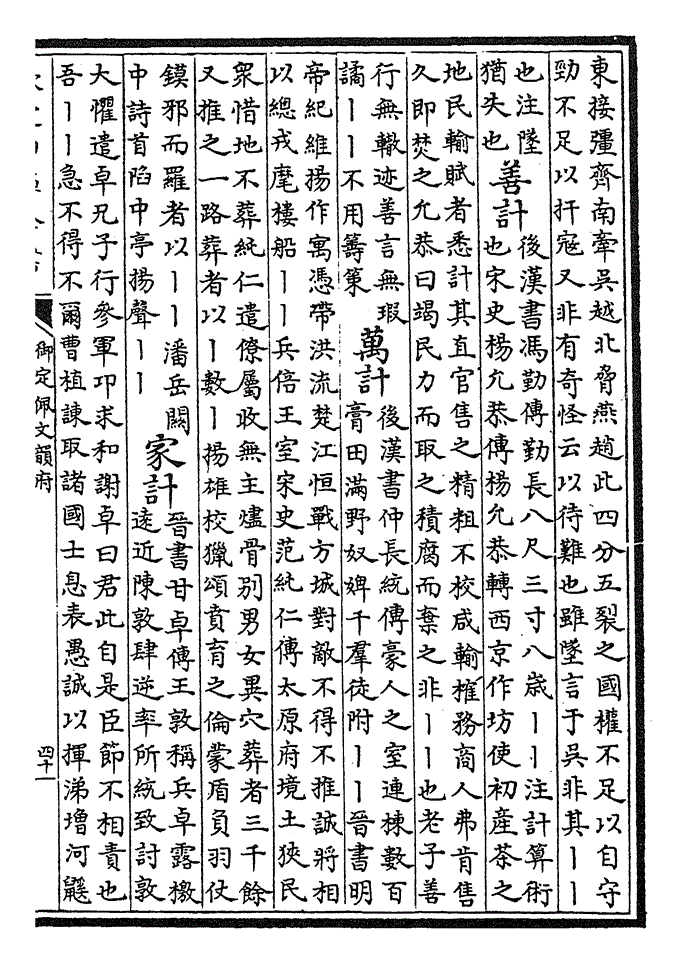 東接彊齊南牽吳越北脅燕趙此四分五裂之國權不足以自守
勁不足以扞寇又非有奇怪云以待難也雖墜言于吳非其丨丨
也注墜
猶失也
善計
後漢書馮勤傳勤長八尺三寸八歲丨丨注計算術
也宋史楊允恭傳楊允恭轉西京作坊使初產茶之
地民輸賦者悉計其直官售之精粗不校咸輸榷務商人弗肯售
久即焚之允恭曰竭民力而取之積腐而棄之非丨丨也老子善
行無轍迹善言無瑕
讁丨丨不用籌策
萬計
後漢書仲長統傳豪人之室連棟數百
膏田滿野奴婢千羣徒附丨丨晉書明
帝紀維揚作寓憑帶洪流楚江恒戰方城對敵不得不推誠將相
以總戎麾樓船丨丨兵倍王室宋史范純仁傳太原府境土狹民
衆惜地不葬純仁遣僚屬收無主燼骨别男女異穴葬者三千餘
又推之一路葬者以丨數丨揚雄校獵頌賁育之倫蒙盾負羽仗
鏌邪而羅者以丨丨潘岳闕
中詩首陷中亭揚聲丨丨
家計
晉書甘卓傳王敦稱兵卓露檄
遠近陳敦肆逆率所統致討敦
大懼遣卓兄子行參軍卭求和謝卓曰君此自是臣節不相責也
吾丨丨急不得不爾曹植諫取諸國士息表愚誠以揮涕增河鼷
御定佩文韻府
四十一